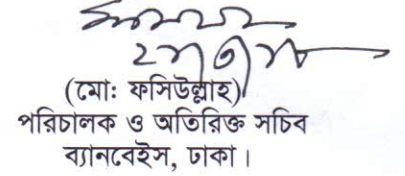 (মো: ফসিউল্লাহ)
পরিচালক ও অতিরিক্ত সচিব
ব্যানবেইস, ঢাকা।